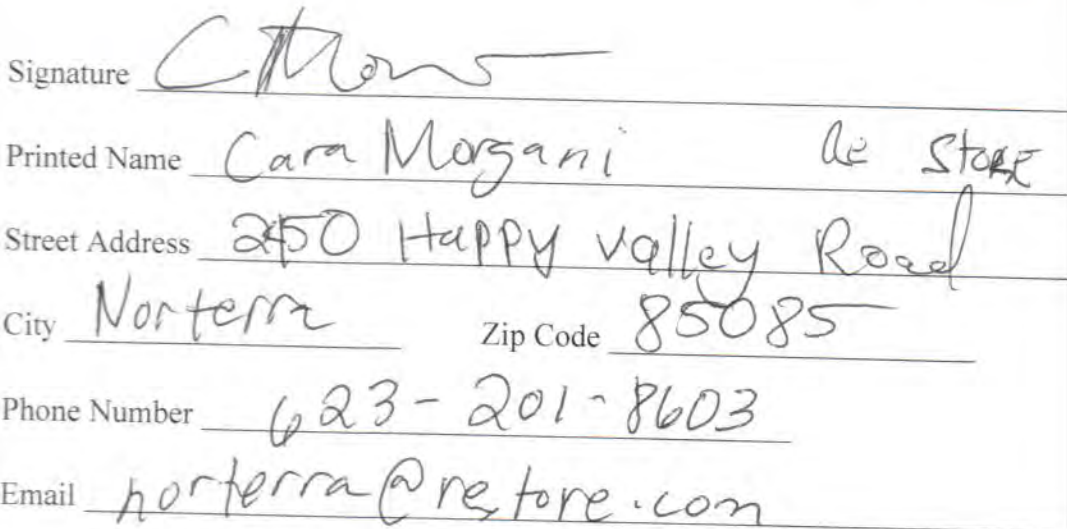 Signature
Printed Name Cara Morgani Re Store
Street Address 2450 Happy Valley Road
City Norterra Zip Code 85085
Phone Number 623-201-8603
Email norterra@restore.com